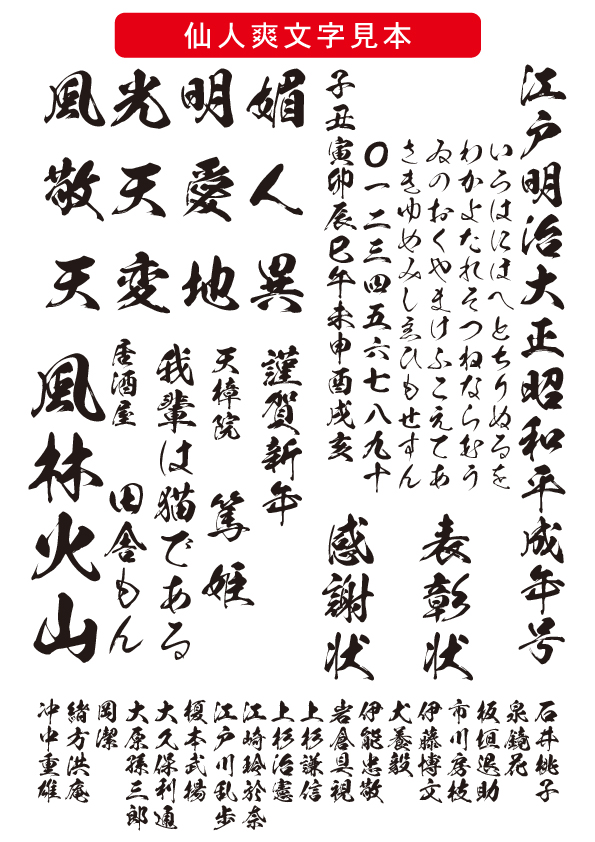 仙人爽文字見本
江戸明治大正昭和平成年号
いろはにほへとちりぬるを
わかよたれそつねならむう
ゐのおくやまけふこえてあ
さきゆめみしゑひもせすん
〇一二三四五六七八九十
子丑寅卯辰巳午未申酉戌亥
表彰状
感謝状
風光明媚
敬天愛人
天変地異
謹賀新年
天樟院 篤姫
我輩は猫である
居酒屋 田舎もん
風林火山
石井桃子
泉鏡花
板垣退助
市川房枝
伊藤博文
犬養毅
伊能忠敬
岩倉具視
上杉謙信
上杉治憲
江崎玲於奈
江戸川乱歩
榎本武揚
大久保利通
大原孫三郎
岡潔
緒方洪庵
冲中重雄